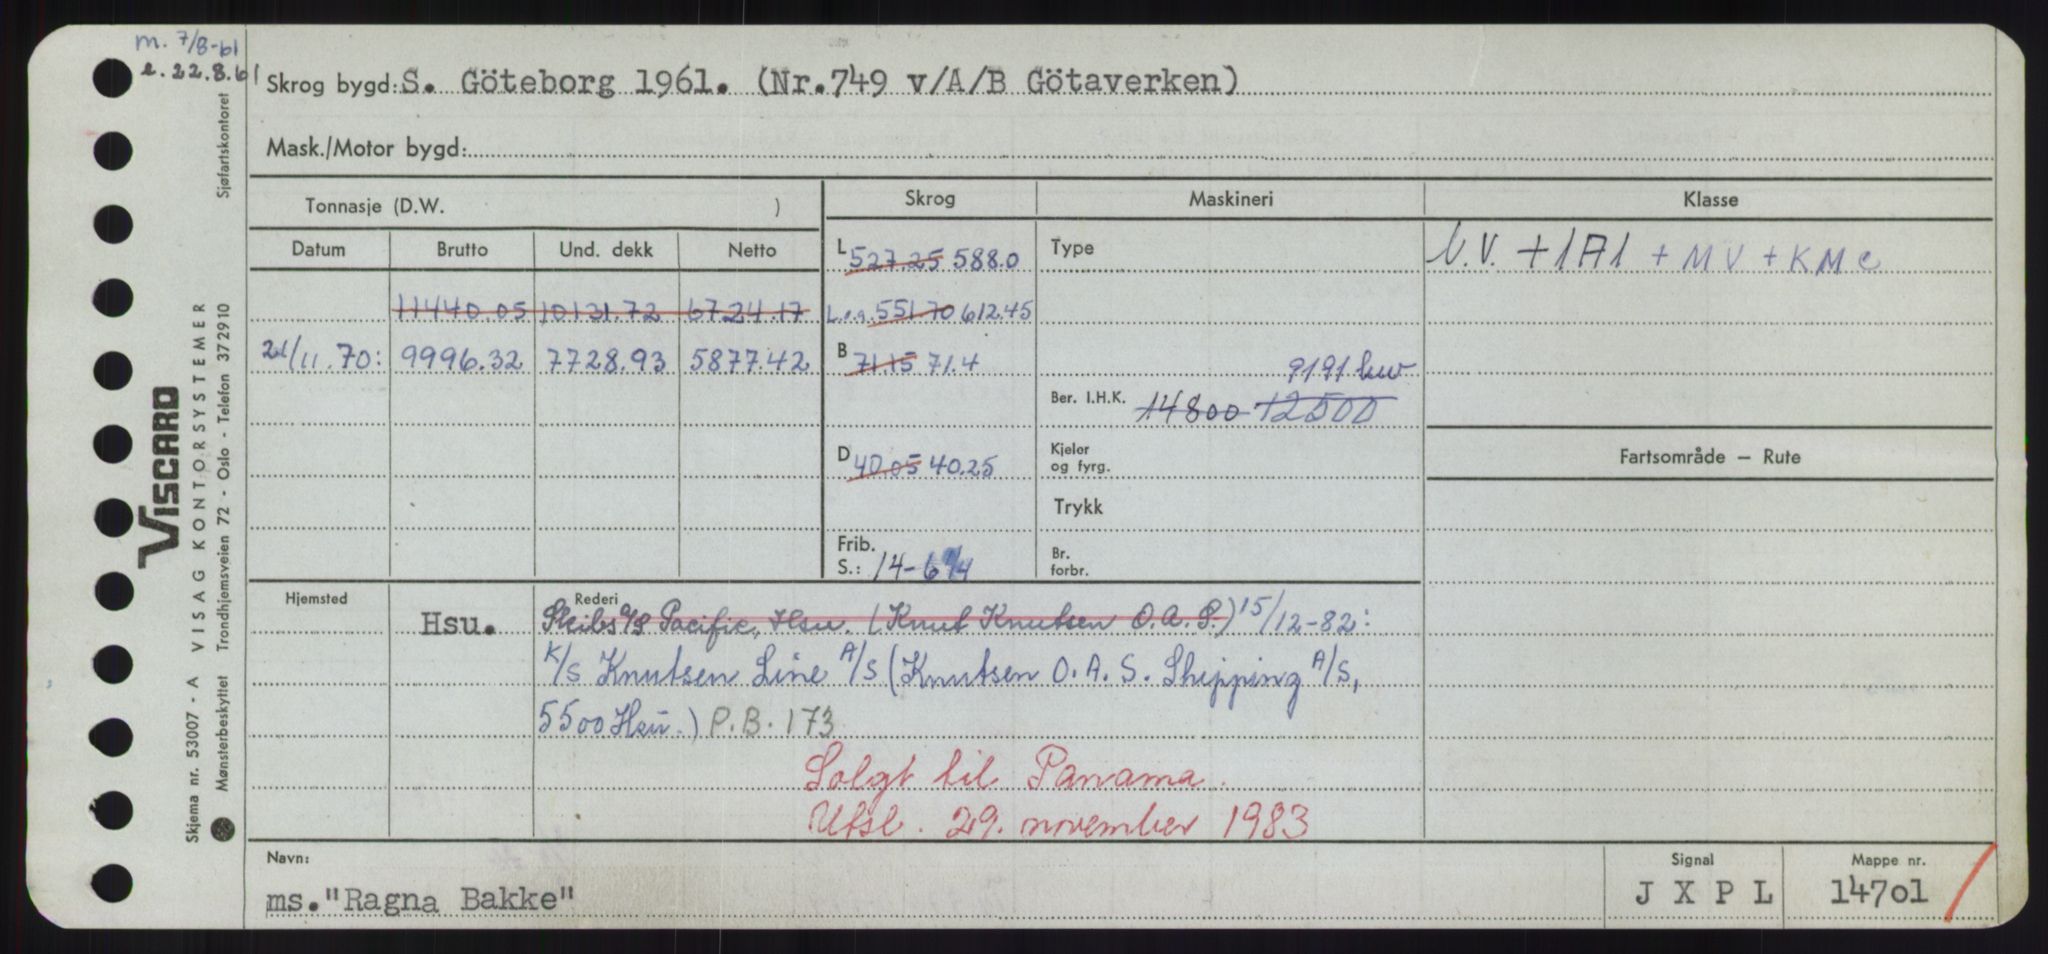 m. 7/8-61
e. 22.8.61
Skrog bygd: S. Göteborg 1961. (Nr.749 v/A/B Götaverken)
Mask./Motor bygd:
Tonnasje (D.W. )
Skrog
Maskineri
Klasse
Datum
Brutto
Und. dekk
Netto
L 527.25 588.0
Type
V.V. +1A1 + MV + KMC
11440.05 10131.72 6724.17
L.o.a. 551.70 612.45
21/11.70: 9996.32 7728.93 5877.42
B 71.15 71.4
9191 kw
Ber. I.H.K. 14800 12500
D 40.05 40.25
Kjeler
og fyrg.
Fartsområde – Rute
Trykk
Frib.
S.: 14-6
Br.
forbr.
Hjemsted
Hsu.
Rederi
Skibs A/S Pacific, Hsu. (Knut Knutsen O.A.S.) 15/12-82:
K/S Knutsen Line A/S (Knutsen O.A.S. Shipping A/S,
5500 Hsu.) P.B. 173
Solgt til Panama.
Utsl. 29. november 1983
Navn:
ms."Ragna Bakke"
Signal
J X P L
Mappe nr.
14701
VISCARD
Skjema nr. 53007 - A VISAG KONTORSYSTEMER
Mønsterbeskyttet Trondhjemsveien 72 - Oslo - Telefon 372910
Sjøfartskontoret